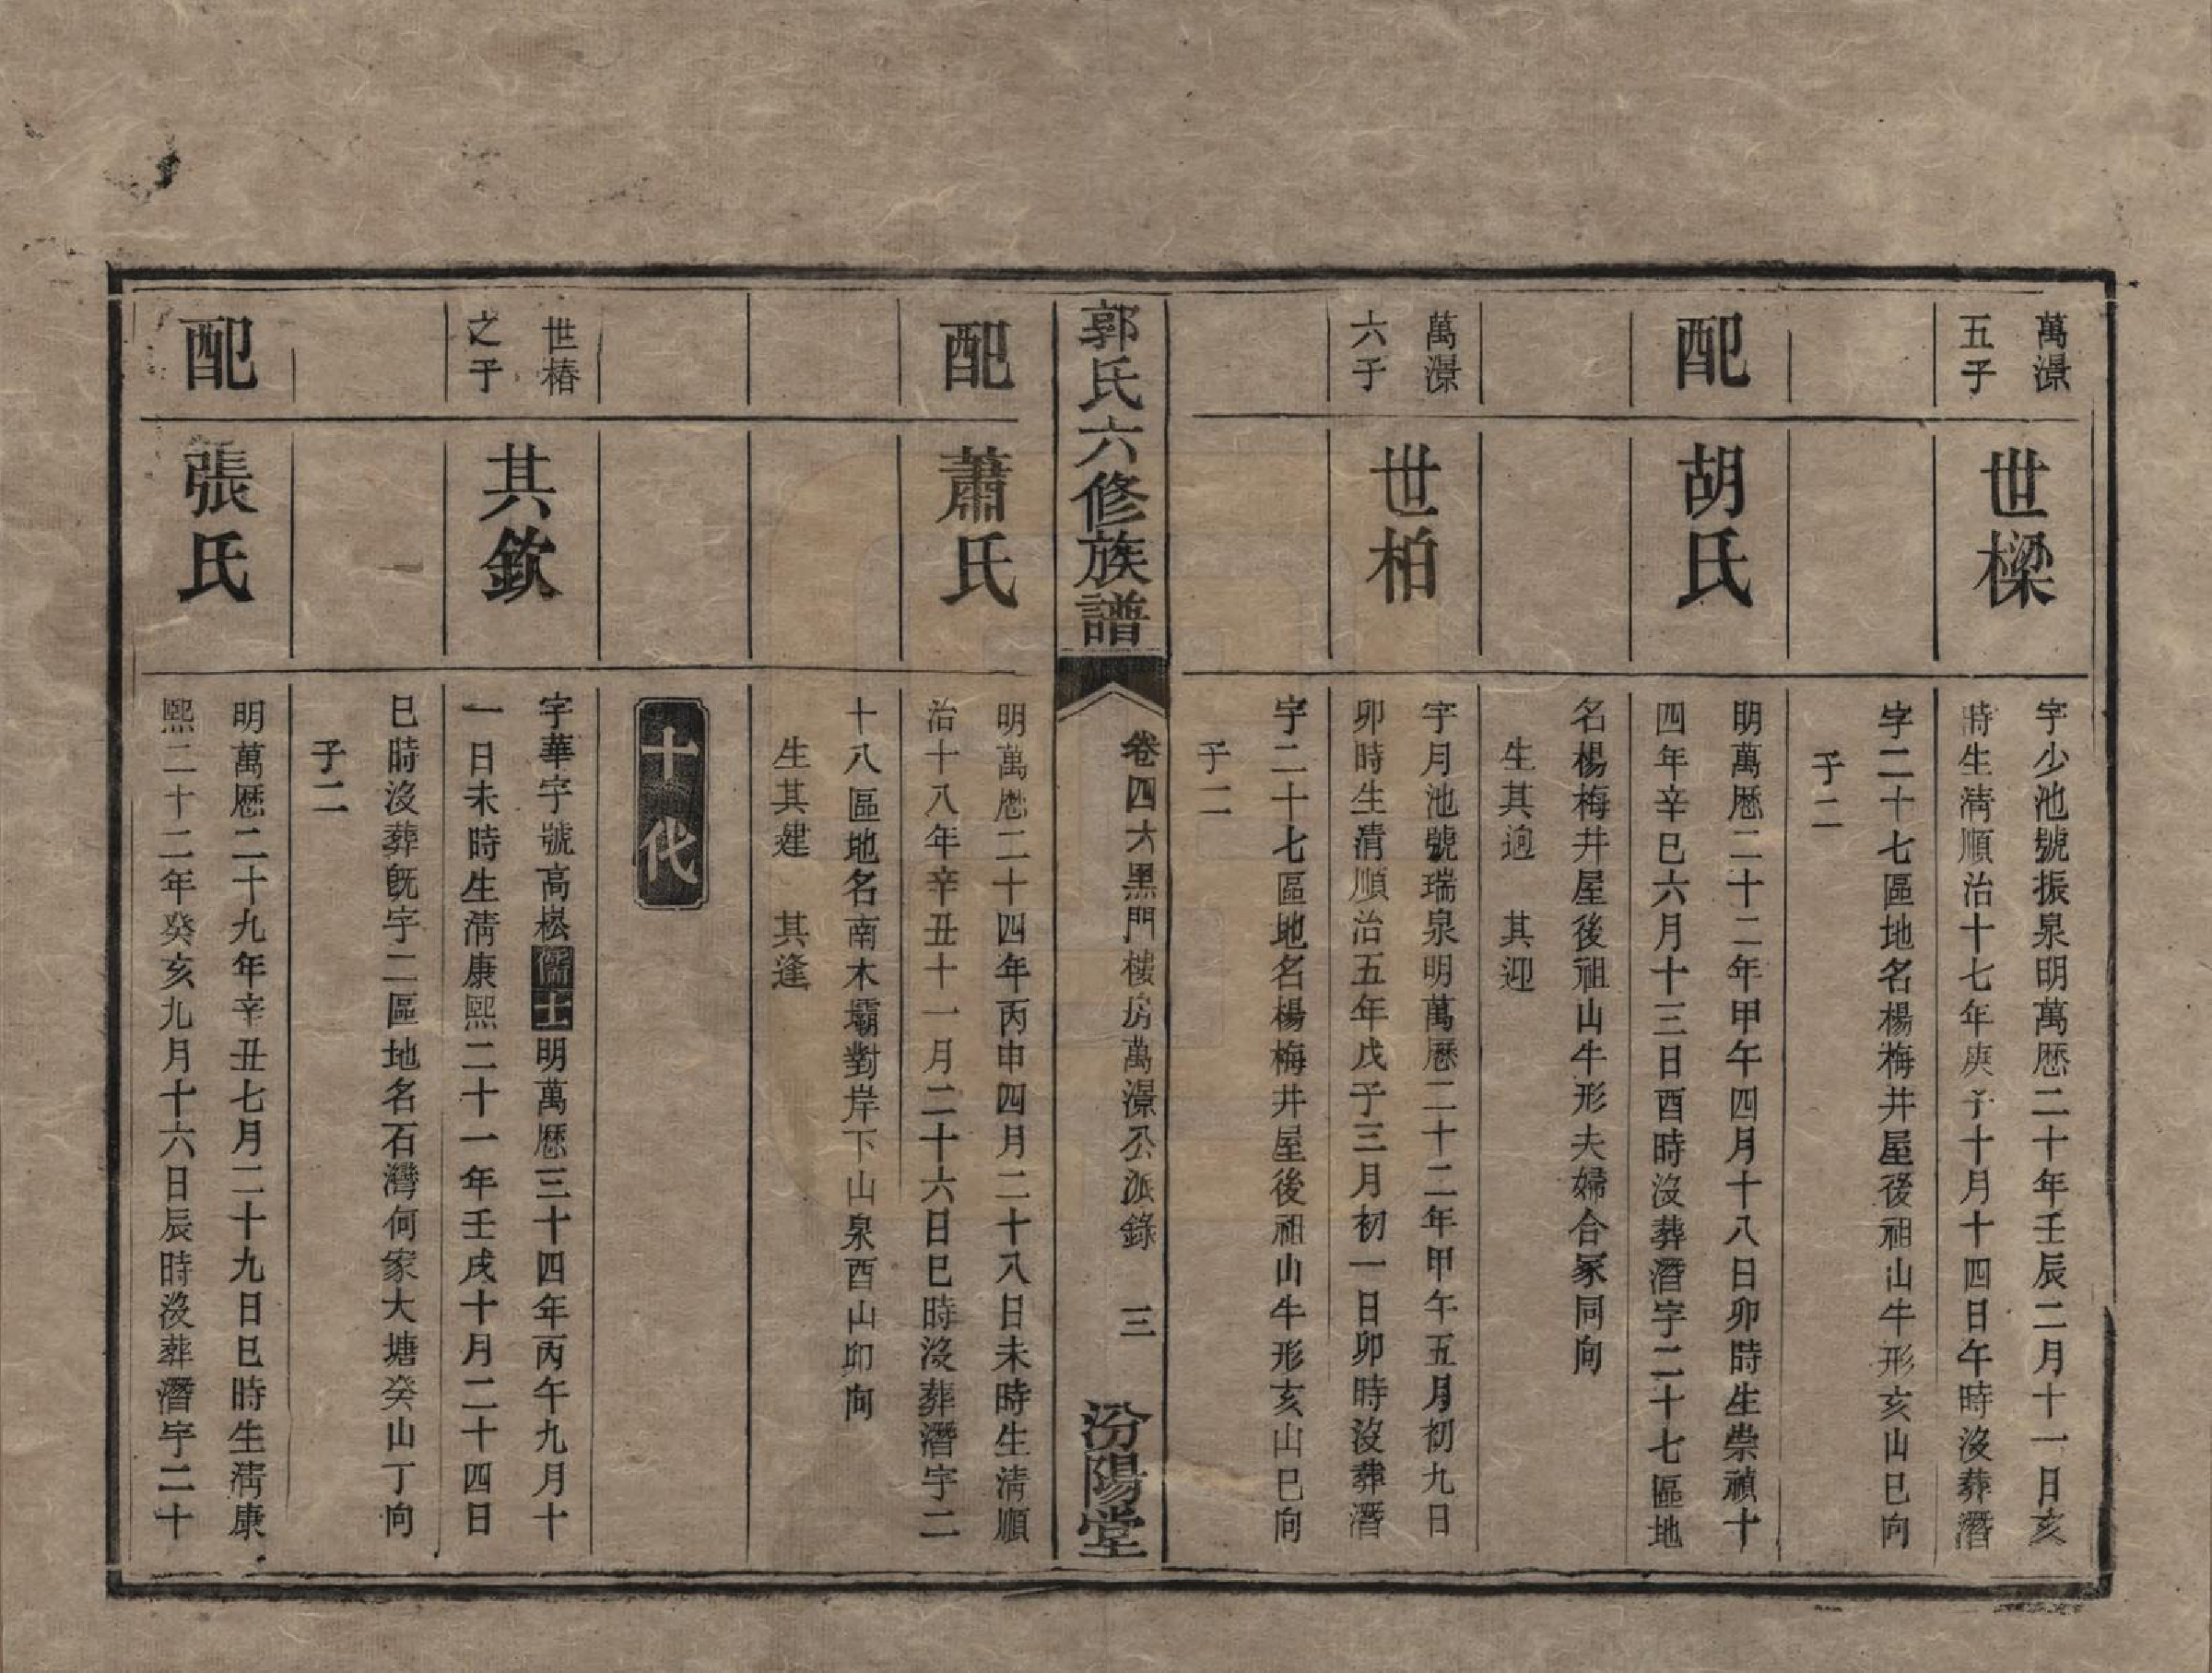 萬澋
五子
世樑
字少池號振泉明萬厯二十年壬辰二月十一日亥
時生淸順治十七年庚子十月十四日午時沒葬潛
字二十七區地名楊梅井屋後祖山牛形亥山巳向
子二
配
胡氏
明萬厯二十二年甲午四月十八日卯時生崇禎十
四年辛巳六月十三日酉時沒葬潛字二十七區地
名楊梅井屋後祖山牛形夫婦合冢同向
生其逈　其迎
萬澋
六子
世柏
字月池號瑞泉明萬厯二十二年甲午五月初九日
卯時生清順治五年戊子三月初一日卯時沒葬潛
字二十七區地名楊梅井屋後祖山牛形亥山巳向
子二
郭氏六修族譜
卷四大黑門樓房萬澋公派錄　三
汾陽堂
配
蕭氏
明萬厯二十四年丙申四月二十八日未時生淸順
治十八年辛丑十一月二十六日巳時沒葬潛字二
十八區地名南木壩對岸下山泉酉山卯向
生其建　其逢
十代
世椿
之子
其欽
字華宇號高崧儒士明萬厯三十四年丙午九月十
一日未時生淸康熙二十一年壬戌十月二十四日
巳時沒葬旣字二區地名石灣何家大塘癸山丁向
子二
配
張氏
明萬厯二十九年辛丑七月二十九日巳時生淸康
熙二十二年癸亥九月十六日辰時沒葬潛字二十